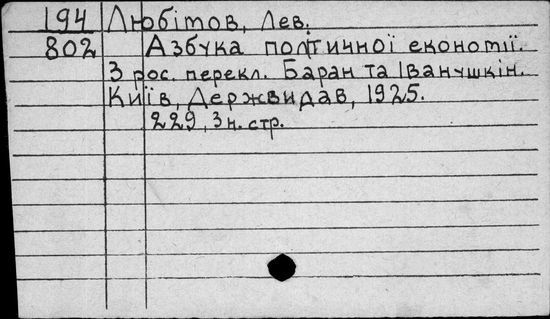 194 Любітов, Лев.
802 Азбука політичної економії.
З рос. перекл. Баран та Іванушкін.
Київ, Держвидав, 1925.
229, 3 н. стр.